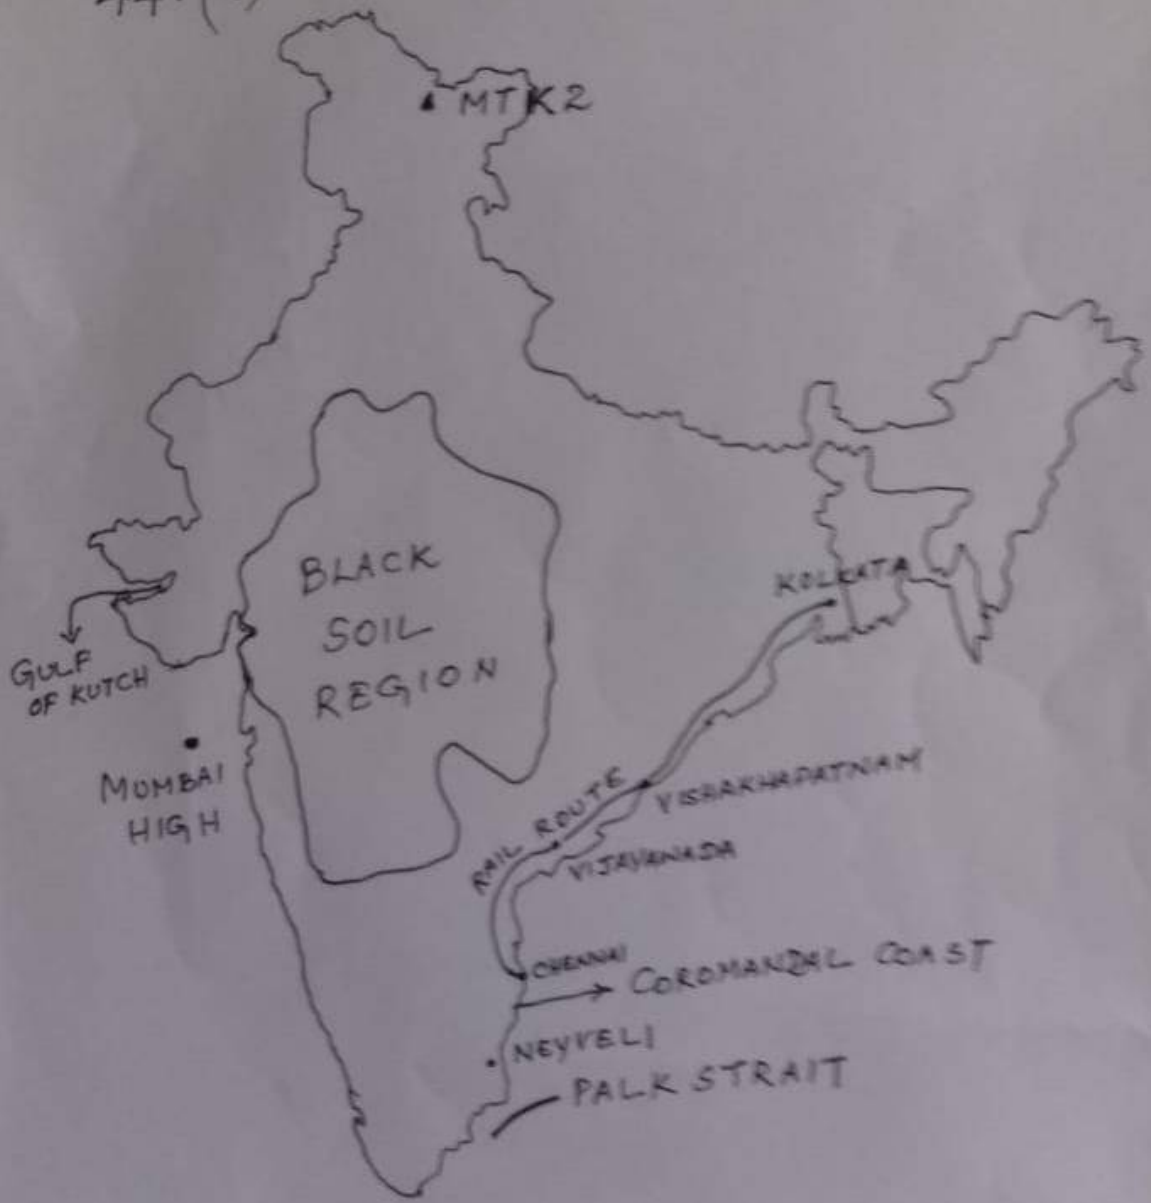 MT K2
BLACK
SOIL
REGION
KOLKATA
GULF
OF KUTCH
MUMBAI
HIGH
RAIL ROUTE
VISHAKHAPATNAM
VIJAYAWADA
CHENNAI
COROMANDAL COAST
NEYVELI
PALK STRAIT